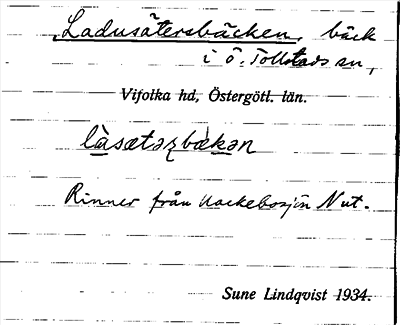 Ladusätersbäcken, bäck
i Ö. Tollstads sn,
Vifolka hd, Östergötl. län.
làsætəʐbækən
Rinner från Hackebosjön N ut.
Sune Lindqvist 1934.